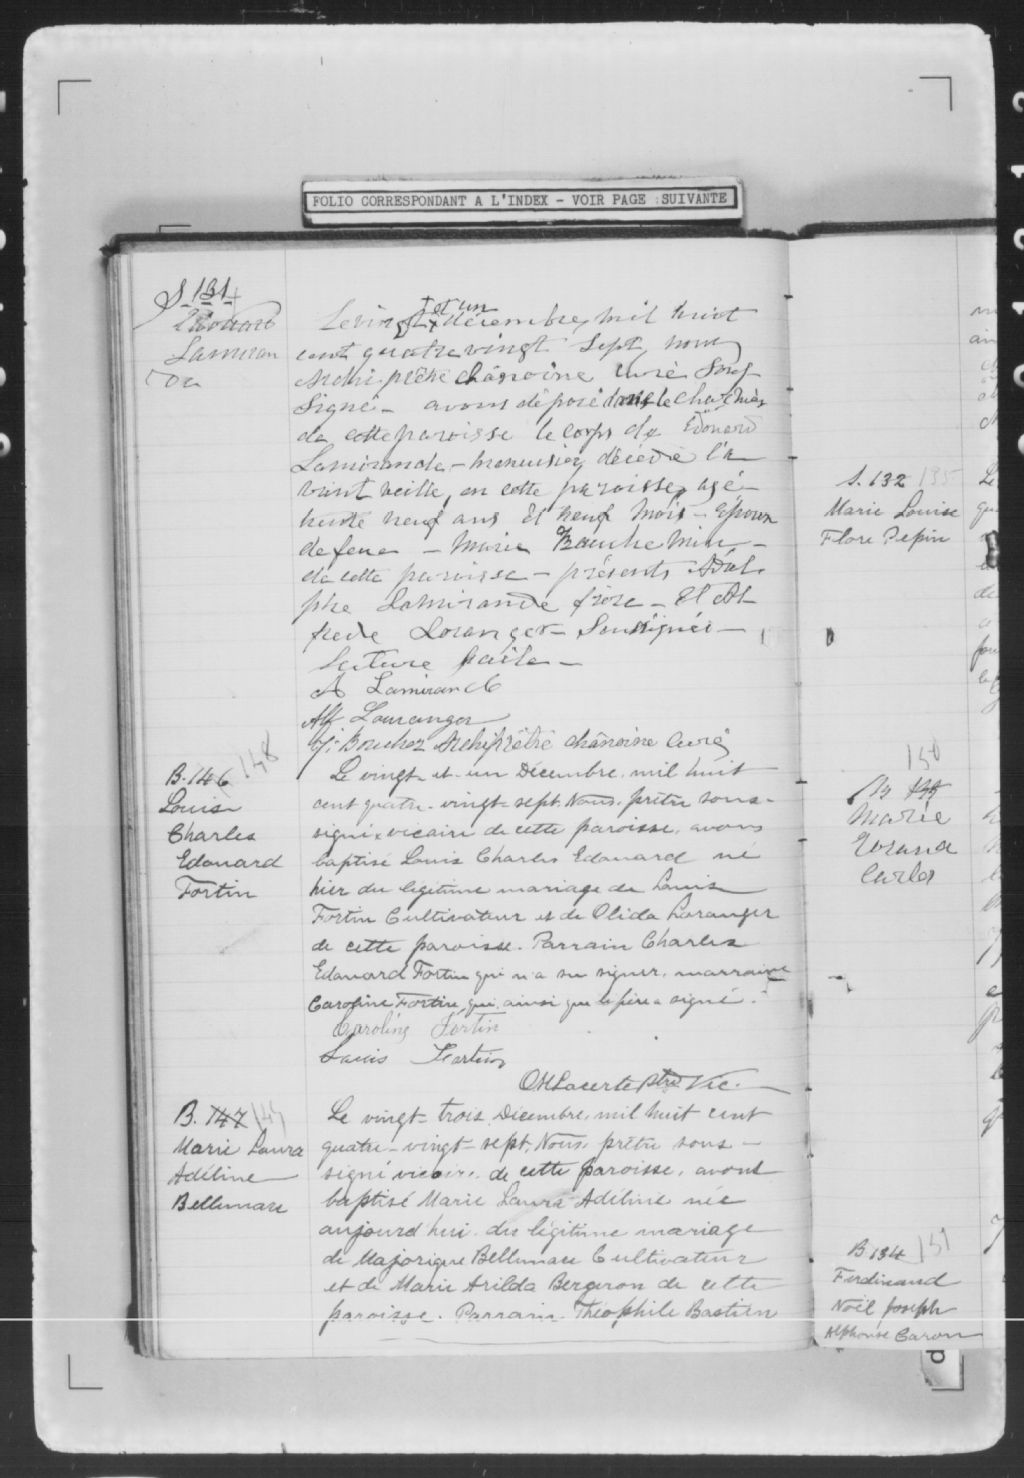 FOLIO CORRESPONDANT A L'INDEX - VOIR PAGE SUIVANTE
S. 131
Edouard
Lamiran
de
Le vingt et un décembre, mil huit
cent quatre vingt sept, nous
Archi-prêtre chânoine curé Sous
Signé - avons déposé dans le charnier
de cette paroisse le corps de Edouard
Lamirande - menuisier, décédé l'a
vant veille, en cette paroisse, agé
trente neuf ans et neuf mois - Epoux
de feue - Marie Beauchemin -
de cette paroisse - présents Adol
phe Lamirande frère - Et Al
frede Loranger - Soussignés -
Lecture faite -
A Lamirande
Alf Louranger
J. Bouchez Archiprêtre chânoine Curé
B. 146 148
Louis
Charles
Edouard
Fortin
Le vingt et un Décembre, mil huit
cent quatre-vingt-sept, Nous, prêtre sous-
signé, vicaire de cette paroisse, avons
baptisé Louis Charles Edouard né
hier du légitime mariage de Louis
Fortin Cultivateur et de Olida Loranger
de cette paroisse. Parrain Charles
Edouard Fortin qui n'a su signer, marraine
Caroline Fortin, qui, ainsi que le père a signé.
Caroline Fortin
Louis Fortin
OM Lacerte Ptre Vic.
B. 147 149
Marie Laura
Adéline
Bellemare
Le vingt-trois Décembre, mil huit cent
quatre-vingt-sept, Nous, prêtre sous-
signé vicaire, de cette paroisse, avons
baptisé Marie Laura Adéline née
aujourd'hui du légitime mariage
de Majorique Bellemare Cultivateur
et de Marie Arilda Bergeron de cette
paroisse. Parrain Théophile Bastien
S. 132 135
Marie Louise
Flore Pepin
150
Marie
B 134 151
Ferdinand
Noël Joseph
Alphonse Caron